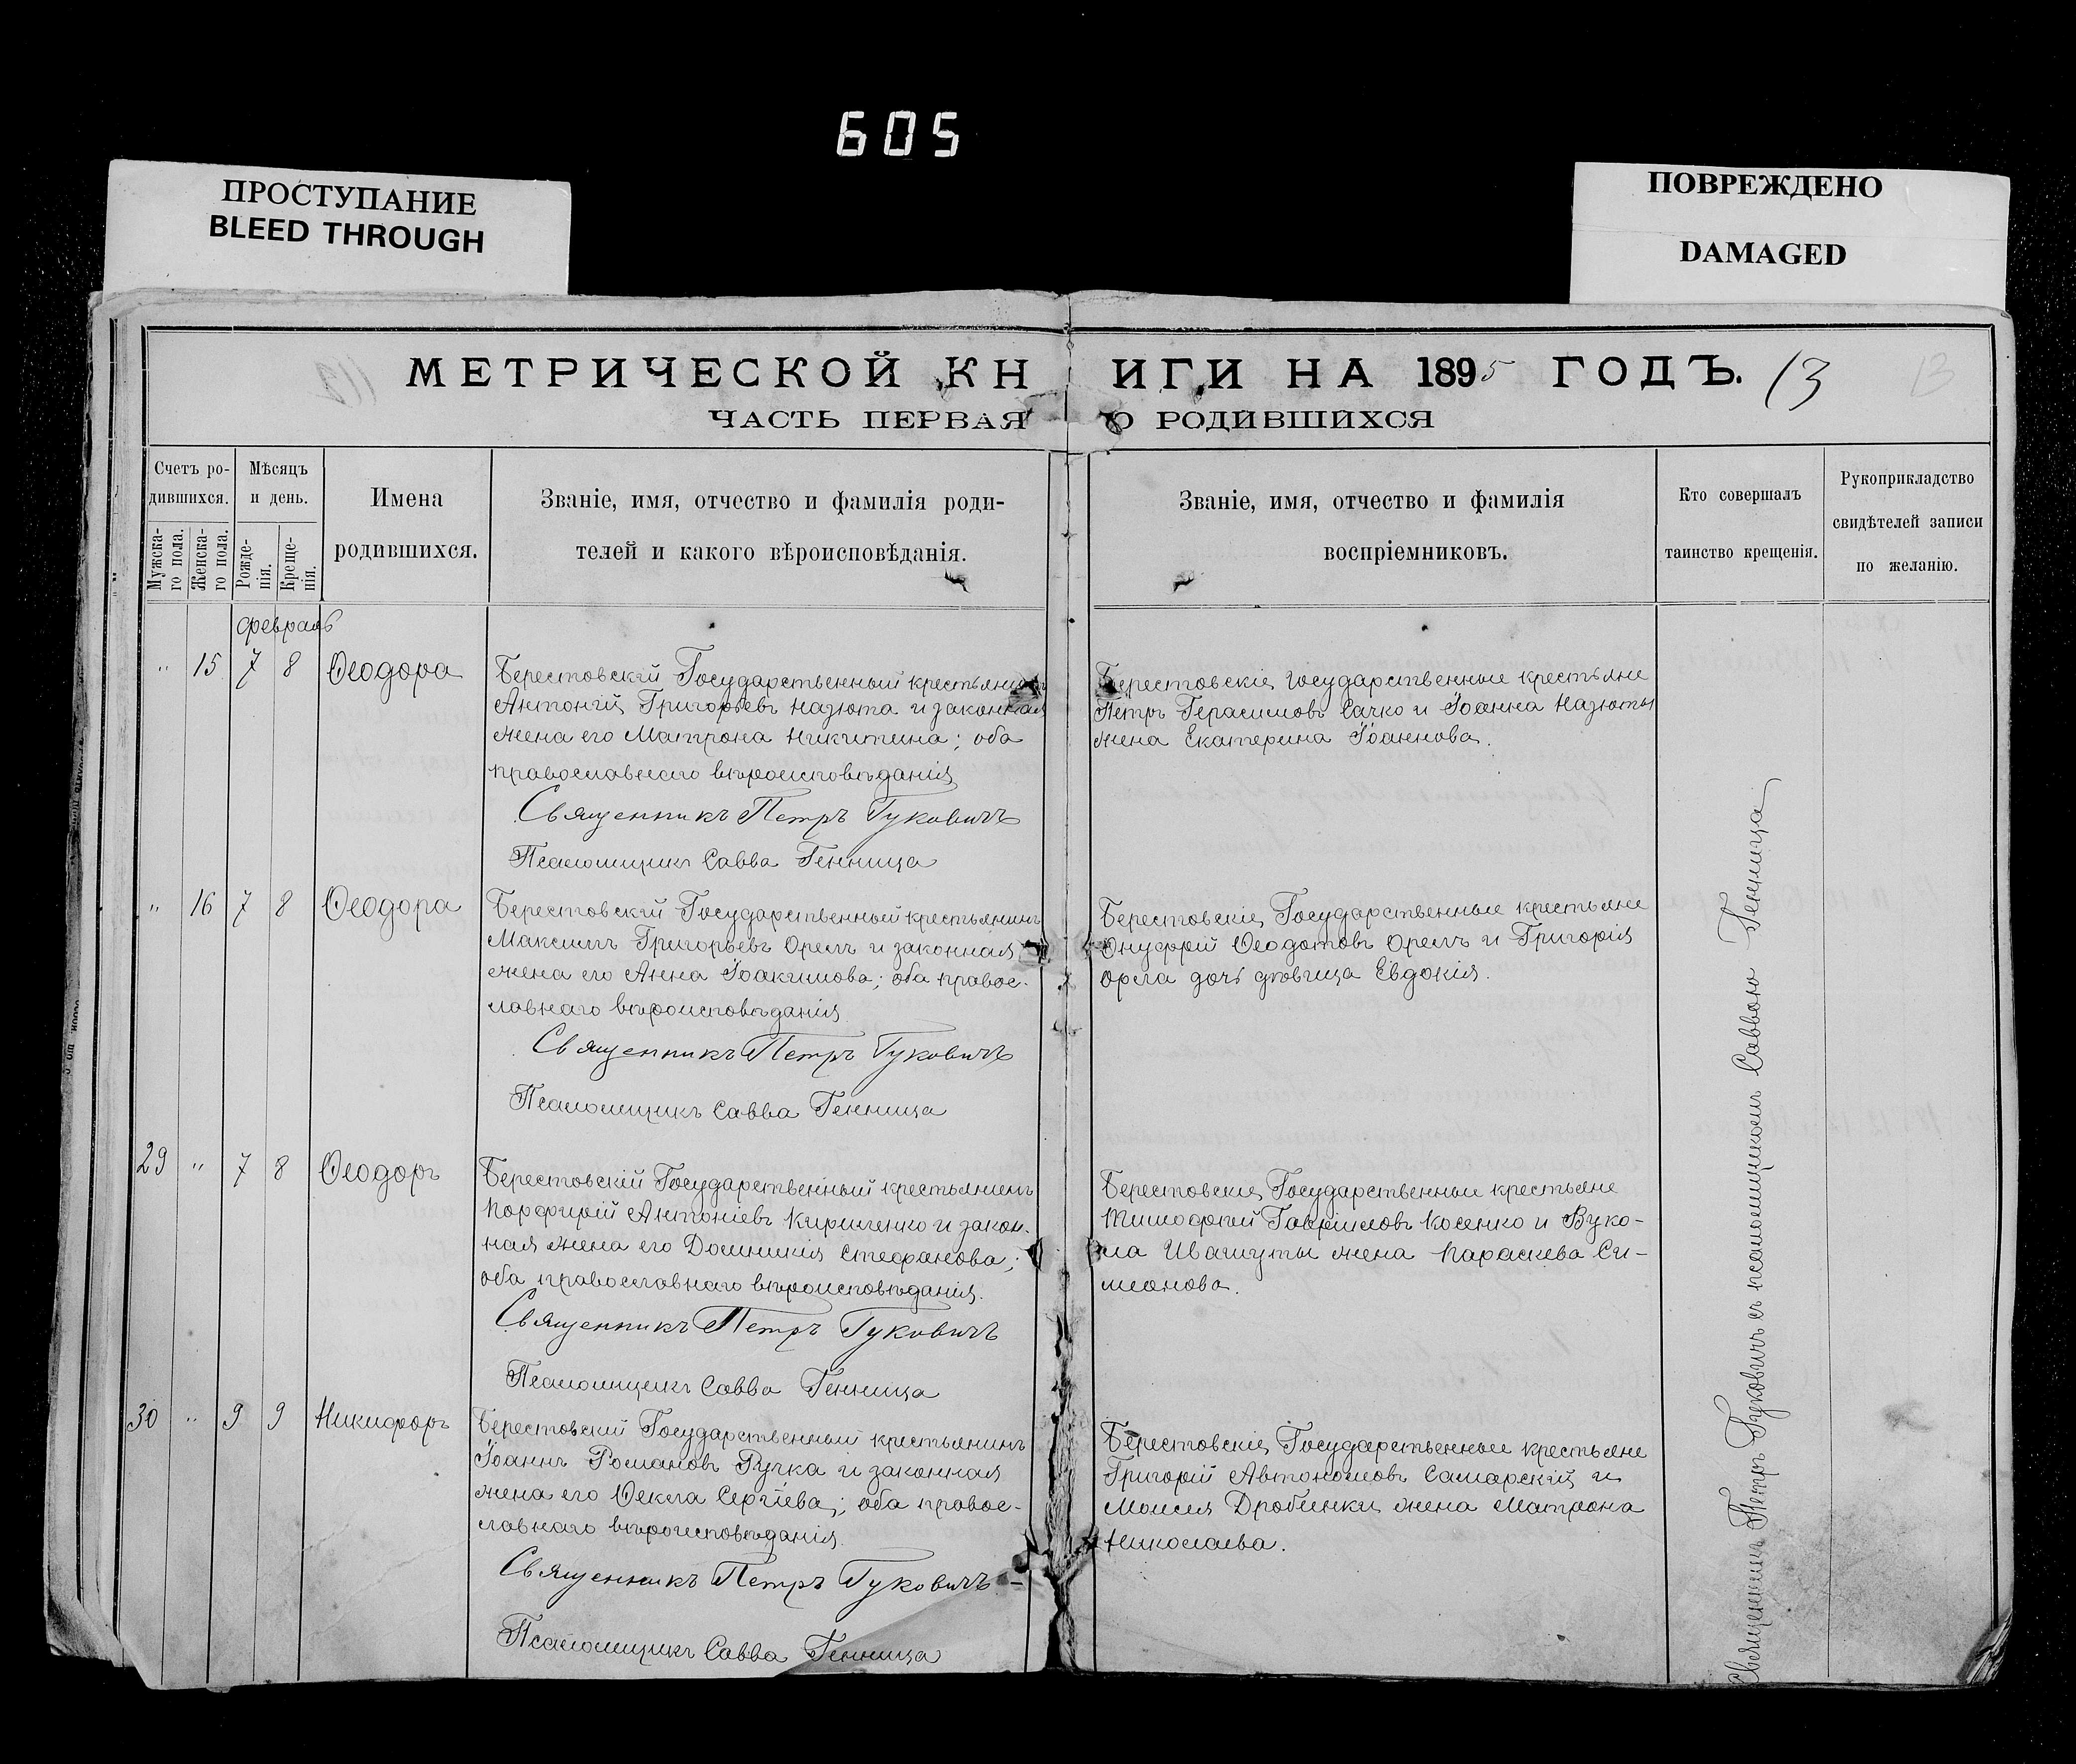 605
ПРОСТУПАНИЕ
BLEED THROUGH
ПОВРЕЖДЕНО
DAMAGED
МЕТРИЧЕСКОЙ КНИГИ НА 1895 ГОДЪ. 13
ЧАСТЬ ПЕРВАЯ О РОДИВШИХСЯ
Счетъ ро-
дившихся.
Мужска-
го пола.
Женска-
го пола.
Мѣсяцъ
и день.
Рожде-
нія.
Креще-
нія.
Имена
родившихся.
Званіе, имя, отчество и фамилія роди-
телей и какого вѣроисповѣданія.
Званіе, имя, отчество и фамилія
воспріемниковъ.
Кто совершалъ
таинство крещенія.
Рукоприкладство
свидѣтелей записи
по желанію.
Февраль
" 15 7 8 Ѳеодора
Берестовскій Государственный крестьянинъ
Антоній Григорьевъ Назюта и законная
жена его Матрона Никитина; оба
православнаго вѣроисповѣданія
Священникъ Петръ Гуковичъ
Псаломщикъ Савва Генница
Берестовскіе Государственные крестьяне
Петръ Герасимовъ Сачко и Іоанна Назюты
жена Екатерина Іоаннова.
" 16 7 8 Ѳеодора
Берестовскій Государственный крестьянинъ
Максимъ Григорьевъ Орелъ и законная
жена его Анна Іоакимова; оба правос-
лавнаго вѣроисповѣданія
Священникъ Петръ Гуковичъ
Псаломщикъ Савва Генница
Берестовскіе Государственные крестьяне
Онуфрій Ѳеодотовъ Орелъ и Григорія
Орла дочь дѣвица Евдокія.
29 " 7 8 Ѳеодоръ
Берестовскій Государственный крестьянинъ
Порфирій Антоніевъ Кириленко и закон-
ная жена его Домникія Стефанова;
оба православнаго вѣроисповѣданія.
Священникъ Петръ Гуковичъ
Псаломщикъ Савва Генница
Берестовскіе Государственные крестьяне
Тимофей Гавріиловъ Косенко и Вуко-
ла Ивашуты жена Параскева Си-
меонова.
30 " 9 9 Никифоръ
Берестовскій Государственный крестьянинъ
Іоаннъ Романовъ Ручка и законная
жена его Ѳекла Сергіева; оба правос-
лавнаго вѣроисповѣданія.
Священникъ Петръ Гуковичъ
Псаломщикъ Савва Генница
Берестовскіе Государственные крестьяне
Григорій Автономовъ Самарскій и
Моисея Дробинки жена Матрона
Николаева.
Священникъ Петръ Гуковичъ съ псаломщикомъ Саввою Генница